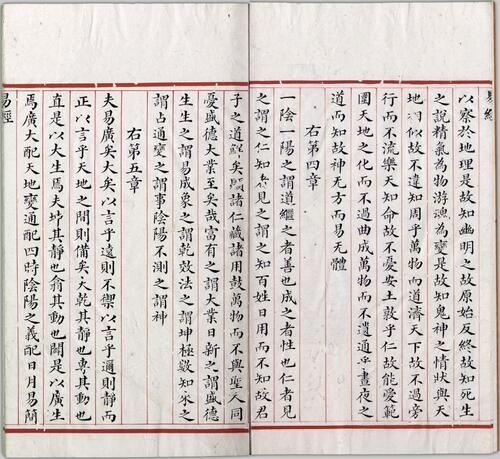 易經
以察於地理是故知幽明之故原始反終故知死生
之說精氣為物游魂為變是故知鬼神之情狀與天
地相似故不違知周乎萬物而道濟天下故不過旁
行而不流樂天知命故不憂安土敦乎仁故能愛範
圍天地之化而不過曲成萬物而不遺通乎晝夜之
道而知故神无方而易无體
右第四章
一陰一陽之謂道繼之者善也成之者性也仁者見
之謂之仁知者見之謂之知百姓日用而不知故君
子之道鮮矣顯諸仁藏諸用鼓萬物而不與聖人同
憂盛德大業至矣哉富有之謂大業日新之謂盛德
生生之謂易成象之謂乾效法之謂坤極數知來之
謂占通變之謂事陰陽不測之謂神
右第五章
夫易廣矣大矣以言乎遠則不禦以言乎邇則靜而
正以言乎天地之間則備矣夫乾其靜也專其動也
直是以大生焉夫坤其靜也翕其動也闢是以廣生
焉廣大配天地變通配四時陰陽之義配日月易簡
易經